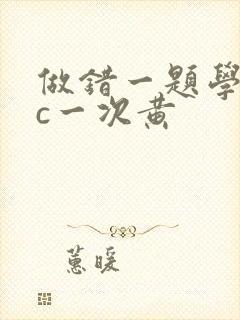 做錯一題學
c一次黃
蕙暖